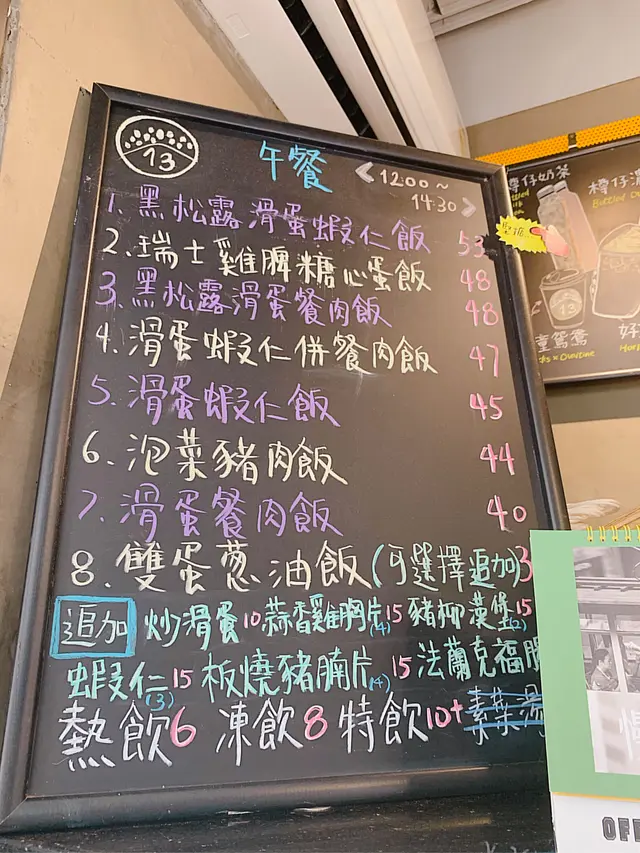 13
午餐 <12:00~
14:30>
1. 黑松露滑蛋蝦仁飯 53
2. 瑞士雞髀糖心蛋飯 48
3. 黑松露滑蛋餐肉飯 48
4. 滑蛋蝦仁併餐肉飯 47
5. 滑蛋蝦仁飯 45
6. 泡菜豬肉飯 44
7. 滑蛋餐肉飯 40
8. 雙蛋蔥油飯(可選擇追加)3
追加 炒滑蛋10 蒜香雞胸片(4)15 豬柳漢堡(2)15
蝦仁(3)15 板燒豬腩片(4)15 法蘭克福腸
熱飲6 凍飲8 特飲10+ 素菜湯
樽仔奶茶
樽仔
13
童鴛鴦
OFF